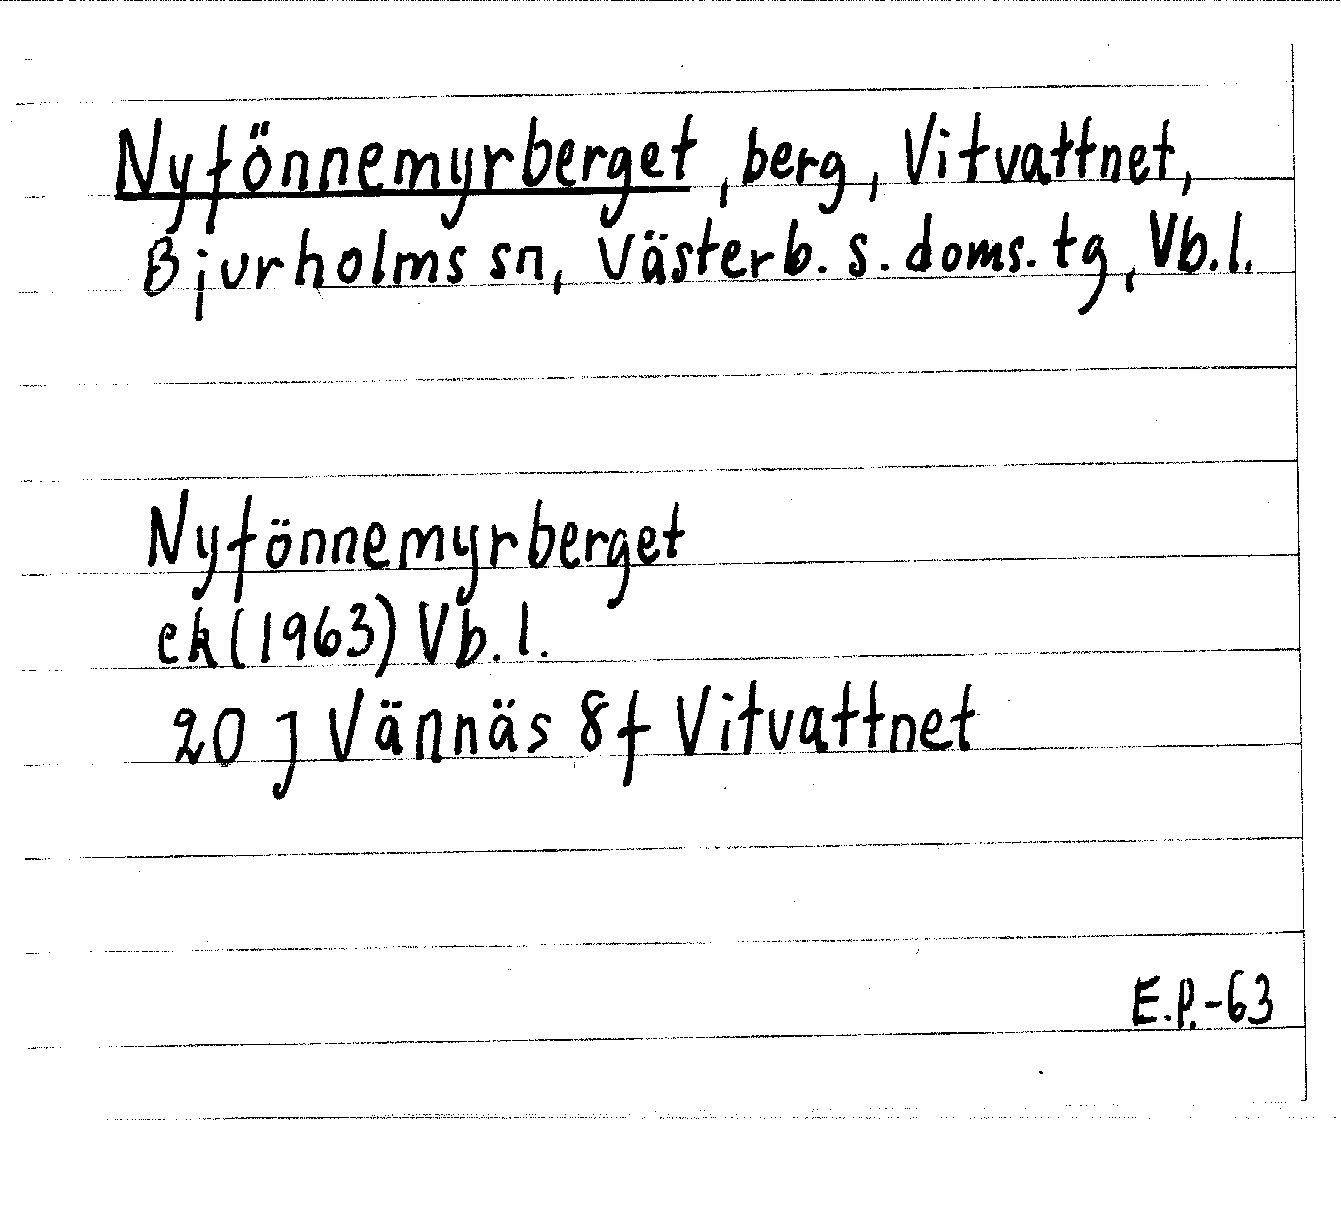 Nyfönnemyrberget, berg, Vitvattnet,
Bjurholms sn, Västerb. s. doms. tg, Vb. l.
Nyfönnemyrberget
ek (1963) Vb. l.
20 J Vännäs 8f Vitvattnet
E.P.-63